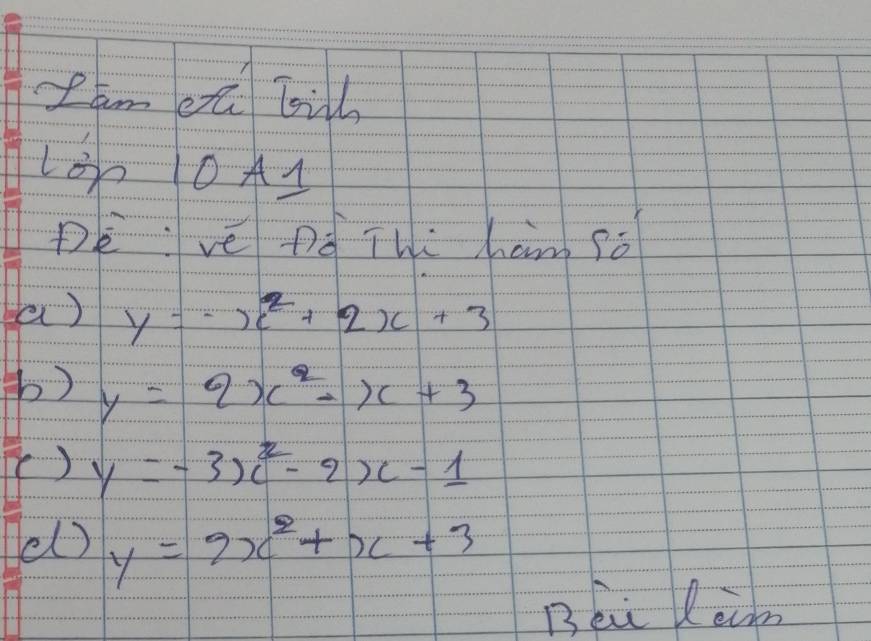 Lâm
Lớp 10 A1
Đề : vẽ Đồ Thị hàm số
a) y = - x² + 2x + 3
b) y = 2x² - x + 3
c) y = - 3x² - 2x - 1
d) y = 2x² + x + 3
Bài làm